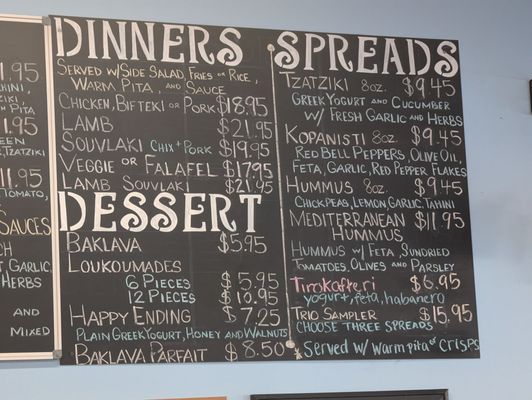 11.95
TAHINI
WITH PITA
11.95
TZATZIKI
11.95
TOMATO,
SAUCES
GARLIC
HERBS
AND
MIXED
DINNERS
SERVED W/SIDE SALAD, FRIES OR RICE,
WARM PITA, AND SAUCE
CHICKEN, BIFTEKI OR PORK $18.95
LAMB $21.95
SOUVLAKI CHIX + PORK $19.95
VEGGIE OR FALAFEL $17.95
LAMB SOUVLAKI $21.95
DESSERT
BAKLAVA $5.95
LOUKOUMADES
6 PIECES $5.95
12 PIECES $10.95
HAPPY ENDING $7.25
PLAIN GREEK YOGURT, HONEY AND WALNUTS
BAKLAVA PARFAIT $8.50
SPREADS
TZATZIKI 8oz. $9.45
GREEK YOGURT AND CUCUMBER
W/ FRESH GARLIC AND HERBS
KOPANISTI 8oz. $9.45
RED BELL PEPPERS, OLIVE OIL,
FETA, GARLIC, RED PEPPER FLAKES
HUMMUS 8oz. $9.45
CHICKPEAS, LEMON, GARLIC, TAHINI
MEDITERRANEAN $11.95
HUMMUS
HUMMUS W/ FETA, SUNDRIED
TOMATOES, OLIVES AND PARSLEY
Tirokafteri $6.95
yogurt, feta, habanero
TRIO SAMPLER $15.95
CHOOSE THREE SPREADS
* SERVED W/ WARM PITA & CRISPS